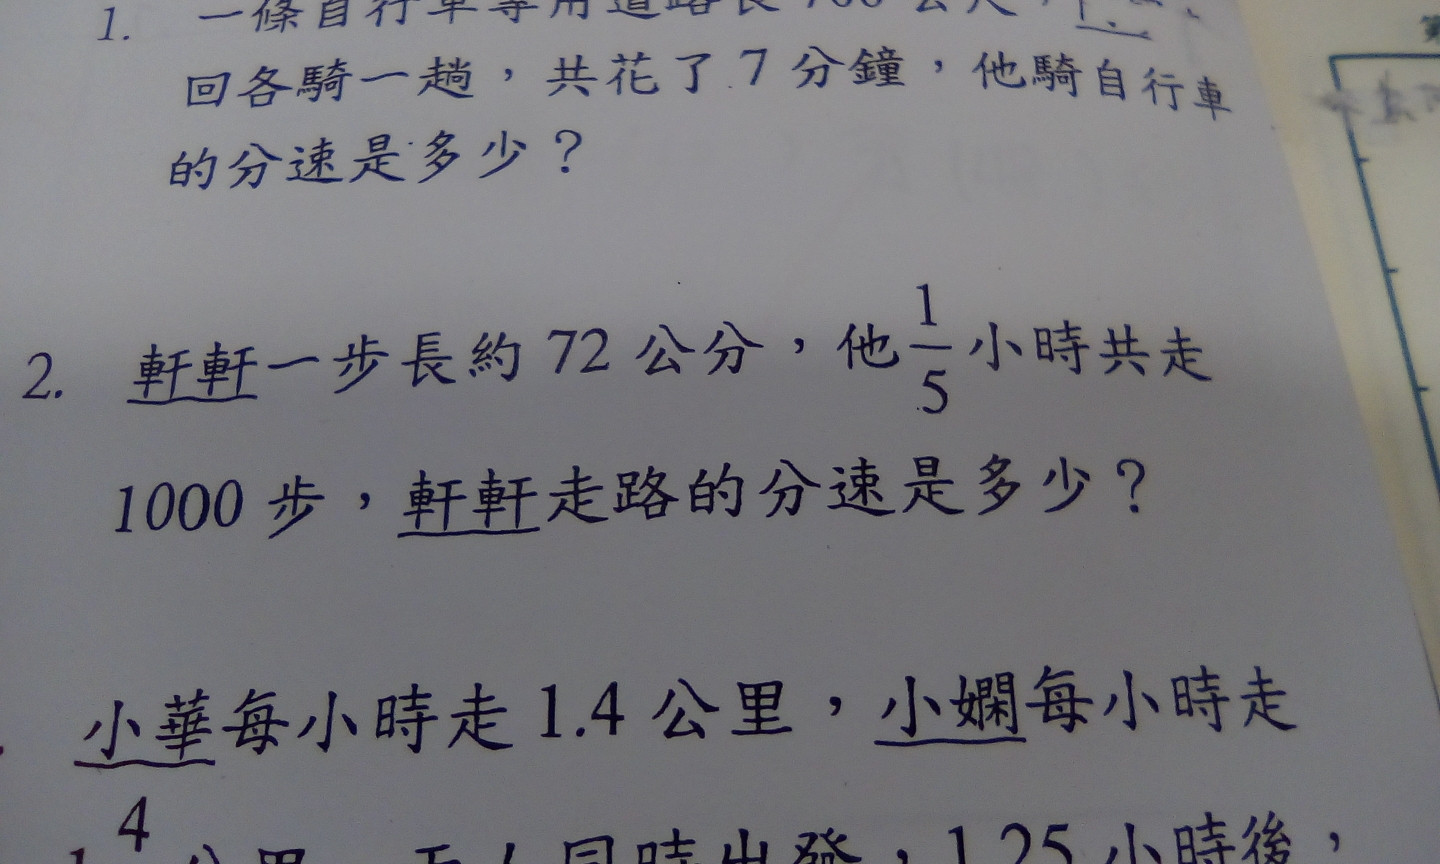 1. 一條自行車專用道路長700公尺，
回各騎一趟，共花了7分鐘，他騎自行車
的分速是多少？
2. 軒軒一步長約72公分，他1/5小時共走
1000步，軒軒走路的分速是多少？
小華每小時走1.4公里，小嫻每小時走
1 4 公里，兩人同時出發，1.25小時後，